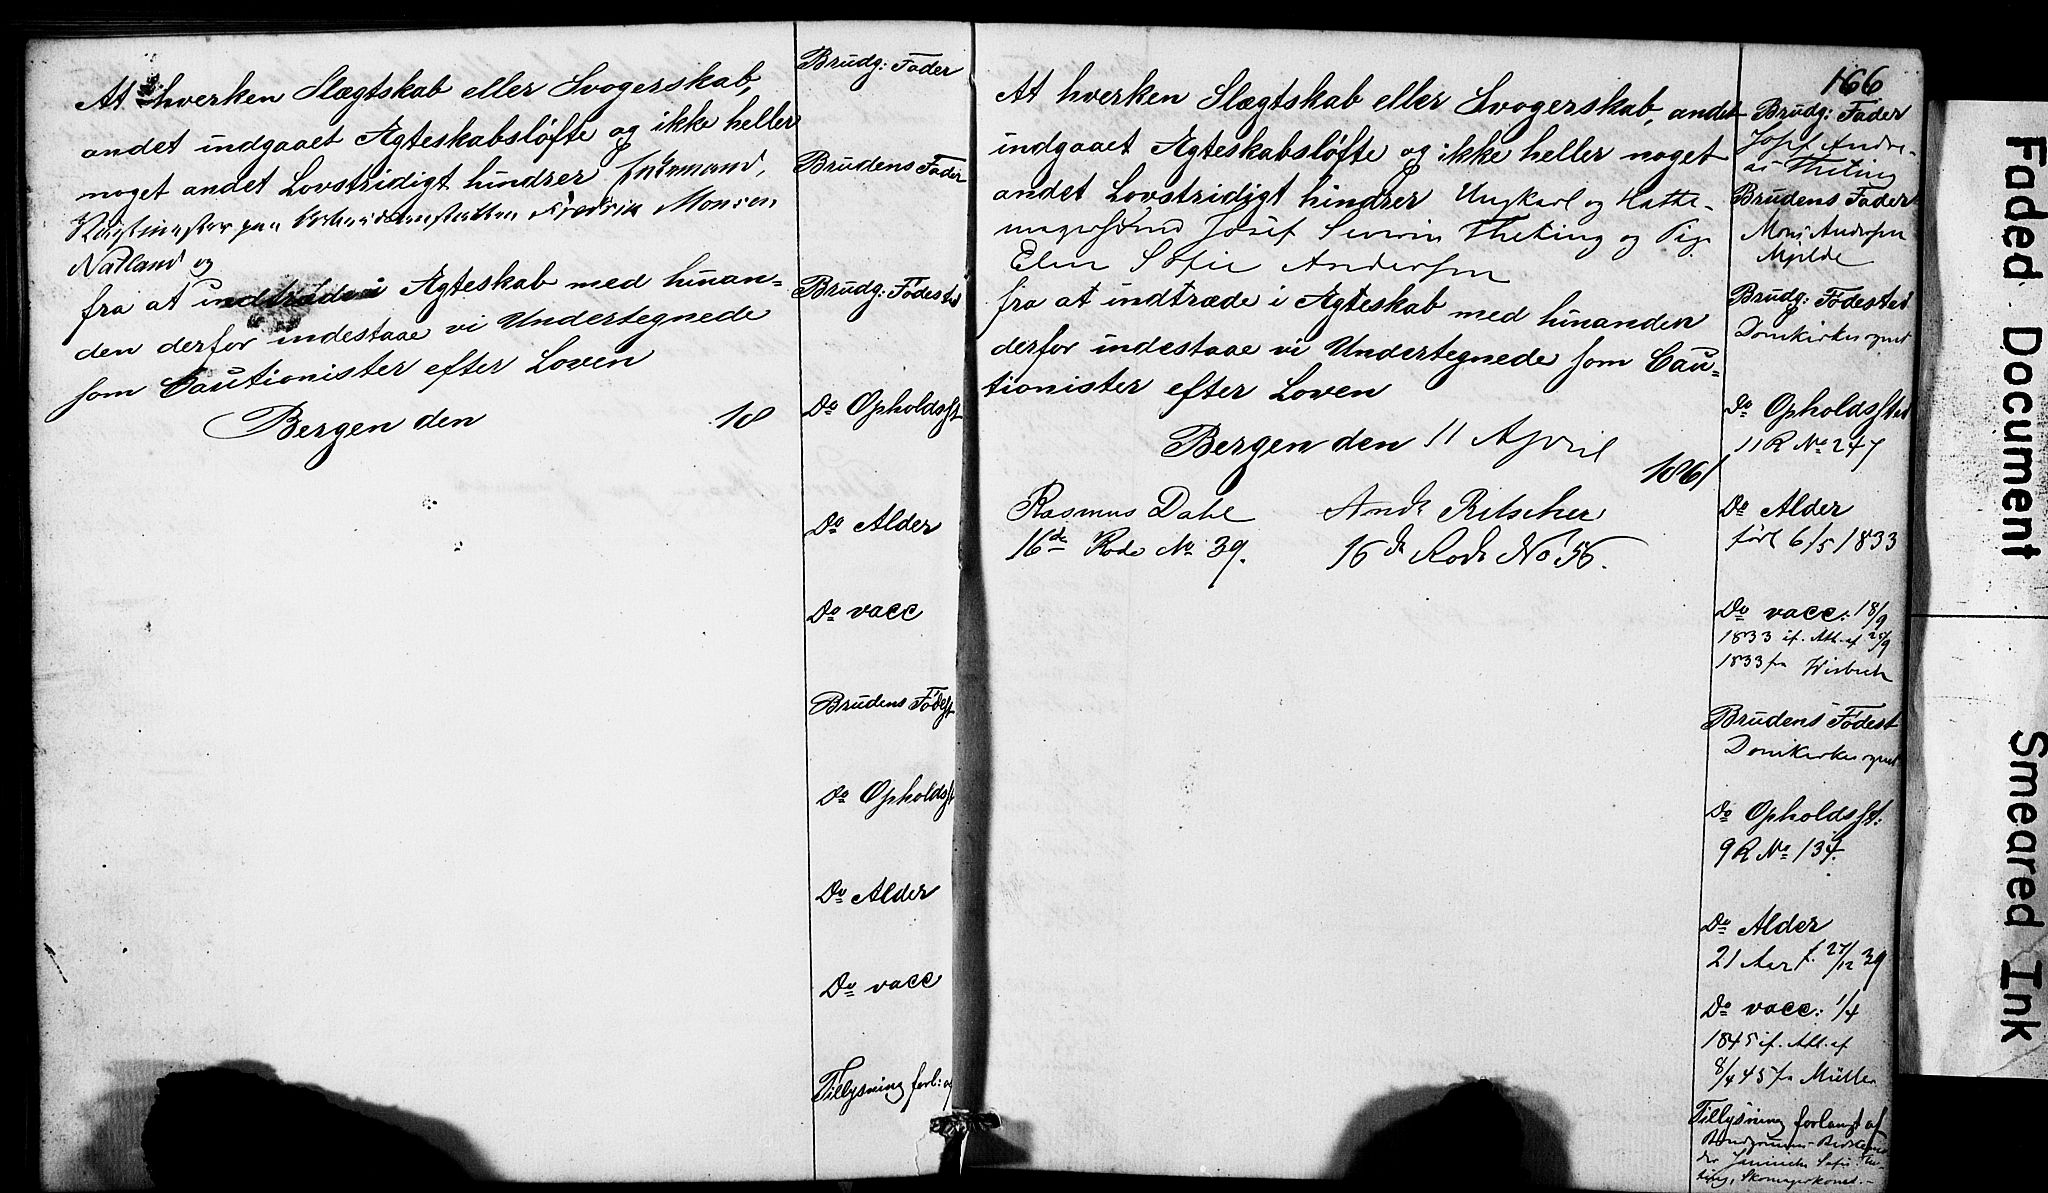 At hverken Slægtskab eller Svogerskab,
andet indgaaet Ægteskabsløfte og ikke heller
noget andet Lovstridigt hindrer Enkemand,
Fredrik Monsen
Natland og
fra at indtræde i Ægteskab med hinan=
den derfor indestaae vi Undertegnede
som Cautionister efter Loven
Bergen den 18
Brudg: Fader
Brudens Fader
Brudg: Fødested
Do Opholdsst
Do Alder
Do vacc
Brudens Fødest
Do Opholdsst
Do Alder
Do vacc
Tillysning forl: af
166
At hverken Slægtskab eller Svogerskab, andet
indgaaet Ægteskabsløfte og ikke heller noget
andet Lovstridigt hindrer Ungkarl og Hatte-
magersvend Josef Severin Theting og Pige
Elen Sofie Andersen
fra at indtræde i Ægteskab med hinanden
derfor indestaae vi Undertegnede som Cau=
tionister efter Loven
Bergen den 11 April
1861
Rasmus Dahl Andr Ritscher
16de Rode No 39. 16de Rode No 56.
Brudg: Fader
Josef Andre-
as Theting
Brudens Fader
Mons Andersen
Mjelde
Brudg: Fødested
Domkirkesognet
Do Opholdssted
11 R No 247
Do Alder
født 6/5 1833
Do vacc: 18/9
1833 if. Att. af 28/9
1833 fra Wisbech
Brudens Fødest
Domkirkesognet
Do Opholdsst:
9 R No 137.
Do Alder
21 Aar f. 27/12 39
Do vacc: 1/4
1845 if. Att. af
8/4 45 fra Müller
Tillysning forlangt af
Brudgommens
Sofie The-
ting, Skomagerkone.-
Faded Document
Smeared Ink